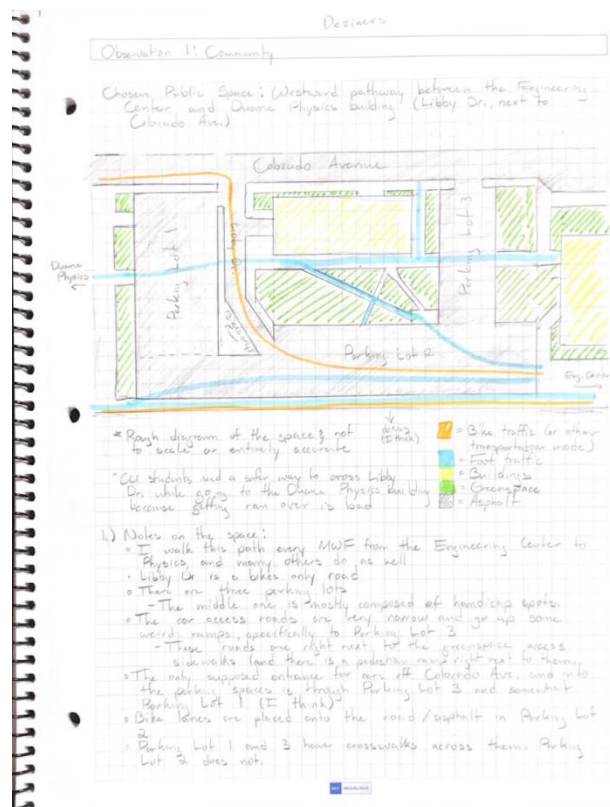 Deziners
Observation 1: Community
Chosen Public Space: (Westward pathway between the Engineering
Center and Duane Physics building (Libby Dr., next to
Colorado Ave.)
Colorado Avenue
Parking Lot 1
Libby Dr.
Parking Lot 3
Duane
Physics
Parking Lot 2
Eng. Center
* Rough diagram of the space & not
to scale or entirely accurate
(I think)
= Bike traffic (or other
transportation mode)
= Foot traffic
= Buildings
= Greenspace
= Asphalt
"CU students need a safer way to cross Libby
Dr. while going to the Duane Physics building
because getting ran over is bad
1.) Notes on the space:
• I walk this path every MWF from the Engineering Center to
Physics, and many others do as well
• Libby Dr is a bikes only road
• There are three parking lots
- The middle one is mostly composed of handicap spots.
• The car access roads are very narrow and go up some
weird ramps, specifically to Parking Lot 3
- These roads are right next to the greenspace access
sidewalks (and there is a pedestrian ramp right next to them)
• The only supposed entrance for cars off Colorado Ave. and into
the parking spaces is through Parking Lot 3 and somewhat
Parking Lot 1 (I think)
• Bike lanes are placed onto the road/asphalt in Parking Lot
2
• Parking Lot 1 and 3 have crosswalks across them. Parking
Lot 2 does not.